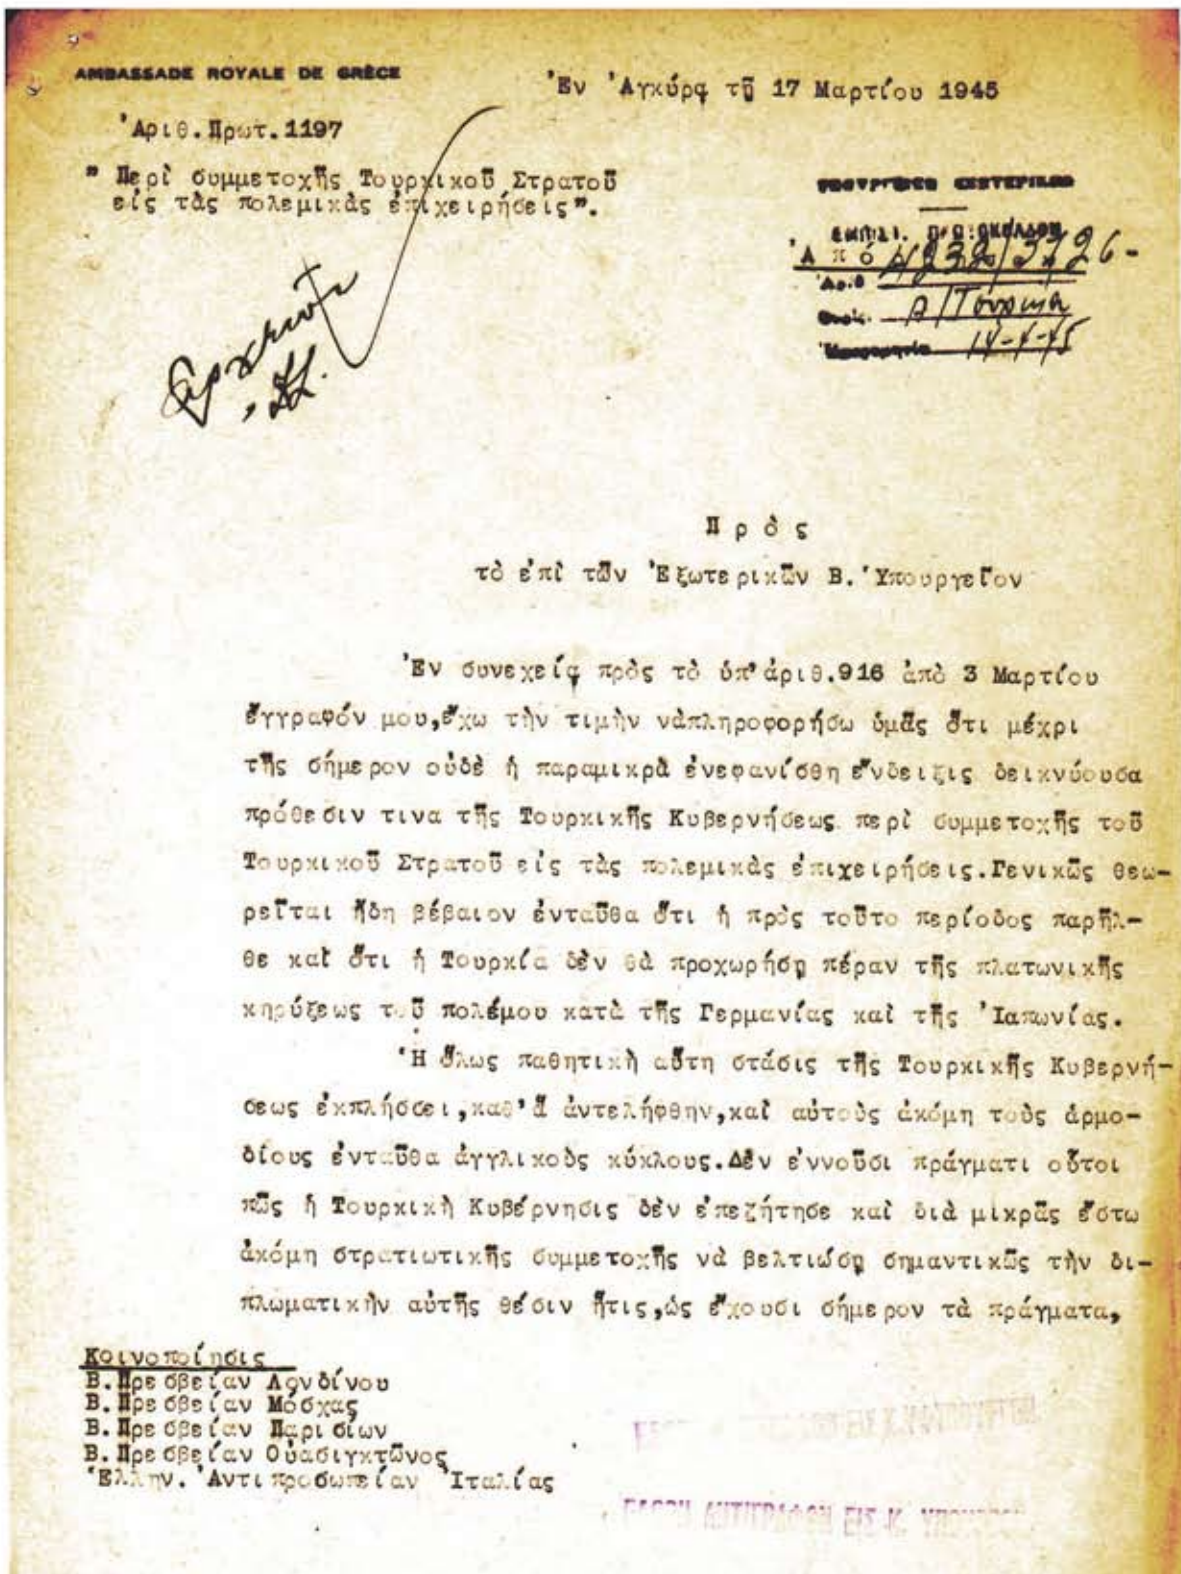 AMBASSADE ROYALE DE GRÈCE
Ἐν Ἀγκύρᾳ τῇ 17 Μαρτίου 1945
Ἀριθ.Πρωτ.1197
" Περὶ συμμετοχῆς Τουρκικοῦ Στρατοῦ
εἰς τὰς πολεμικὰς ἐπιχειρήσεις".
ΥΠΟΥΡΓΕΙΟΝ ΕΞΩΤΕΡΙΚΩΝ
Ἀπό
Ἀριθ
Α/Τουρκία
14-4-45
Πρὸς
τὸ ἐπὶ τῶν Ἐξωτερικῶν Β.Ὑπουργεῖον
Ἐν συνεχείᾳ πρὸς τὸ ὑπ'ἀριθ.916 ἀπὸ 3 Μαρτίου
ἔγγραφόν μου,ἔχω τὴν τιμὴν νὰπληροφορήσω ὑμᾶς ὅτι μέχρι
τῆς σήμερον οὐδὲ ἡ παραμικρὰ ἐνεφανίσθη ἔνδειξις δεικνύουσα
πρόθεσιν τινα τῆς Τουρκικῆς Κυβερνήσεως περὶ συμμετοχῆς τοῦ
Τουρκικοῦ Στρατοῦ εἰς τὰς πολεμικὰς ἐπιχειρήσεις.Γενικῶς θεω-
ρεῖται ἤδη βέβαιον ἐνταῦθα ὅτι ἡ πρὸς τοῦτο περίοδος παρῆλ-
θε καὶ ὅτι ἡ Τουρκία δὲν θὰ προχωρήσῃ πέραν τῆς πλατωνικῆς
κηρύξεως τοῦ πολέμου κατὰ τῆς Γερμανίας καὶ τῆς Ἰαπωνίας.
Ἡ ὅλως παθητικὴ αὕτη στάσις τῆς Τουρκικῆς Κυβερνή-
σεως ἐκπλήσσει,καθ'ἃ ἀντελήφθην,καὶ αὐτοὺς ἀκόμη τοὺς ἁρμο-
δίους ἐνταῦθα ἀγγλικοὺς κύκλους.Δὲν ἐννοῦσι πράγματι οὗτοι
πῶς ἡ Τουρκικὴ Κυβέρνησις δὲν ἐπεζήτησε καὶ διὰ μικρᾶς ἔστω
ἀκόμη στρατιωτικῆς συμμετοχῆς νὰ βελτιώσῃ σημαντικῶς τὴν δι-
πλωματικὴν αὐτῆς θέσιν ἥτις,ὡς ἔχουσι σήμερον τὰ πράγματα,
Κοινοποίησις
Β.Πρεσβείαν Λονδίνου
Β.Πρεσβείαν Μόσχας
Β.Πρεσβείαν Παρισίων
Β.Πρεσβείαν Οὐασιγκτῶνος
Ἑλλην.Ἀντιπροσωπείαν Ἰταλίας
ΑΝΤΙΓΡΑΦΟΝ ΕΙΣ Κ.